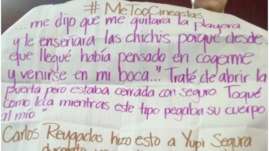 #MeTooCineastas
"...me dijo que me quitara la playera
y le enseñara las chichis porque desde
que llegué había pensado en cogerme
y venirse en mi boca..." Traté de abrir la
puerta pero estaba cerrada con seguro. Toqué
como loca mientras este tipo pegaba su cuerpo
al mío
Carlos Reygadas hizo esto a Yupi Segura